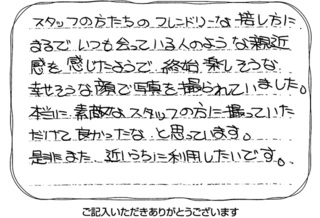 スタッフの方たちのフレンドリーな接し方に
まるでいつも会っている人のような親近
感を感じたようで、終始楽しそうな
幸せそうな顔で写真を撮られていました。
本当に素敵なスタッフの方に撮っていた
だけて良かったな と思っています。
是非また、近いうちに利用したいです。
ご記入いただきありがとうございます